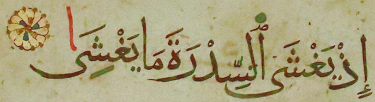 إِذْ يَغْشَى ٱلسِّدْرَةَ مَا يَغْشَىٰ